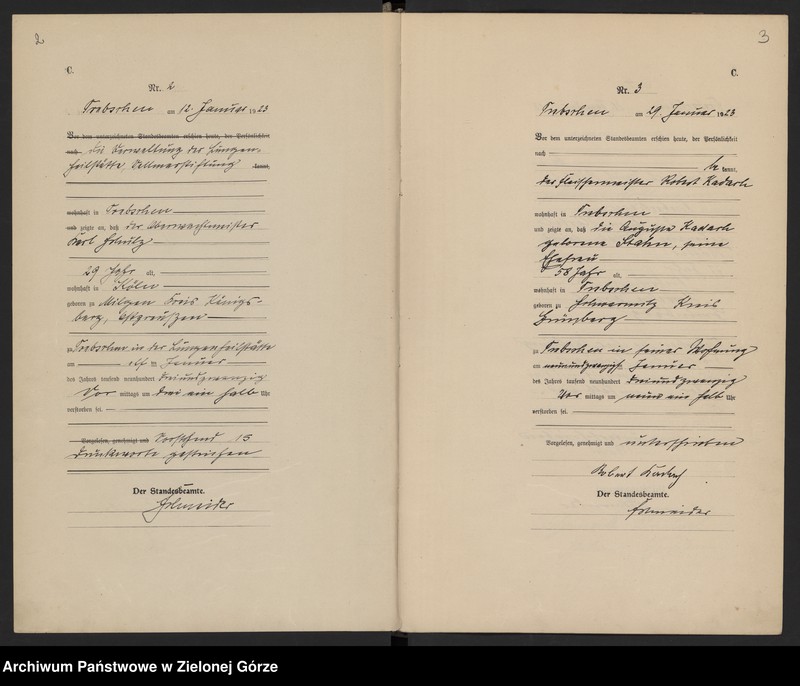 2
C.
Nr. 2
Trebschen am 12. Januar 1923
Vor dem unterzeichneten Standesbeamten erschien heute, der Persönlichkeit
nach die Verwaltung der Lungen-
heilstätte, kannt,
wohnhaft in Trebschen
und zeigte an, daß der Oberwachtmeister
Karl Schulz
29 Jahr alt,
wohnhaft in Köln
geboren zu Kreis Königs-
berg, Ostpreußen
zu Trebschen in der Lungenheilstätte
am elf ten Januar
des Jahres tausend neunhundert dreiundzwanzig
Vor mittags um drei ein halb Uhr
verstorben sei.
Vorgelesen, genehmigt und Vorstehend 15
Druckworte gestrichen
Der Standesbeamte.
Schneider
3
C.
Nr. 3
Trebschen am 29. Januar 1923
Vor dem unterzeichneten Standesbeamten erschien heute, der Persönlichkeit
nach
be kannt,
der Fleischermeister Robert Kadach
wohnhaft in Trebschen
und zeigte an, daß die Auguste Kadach
geborene Stahn, seine
Ehefrau
58 Jahr alt,
wohnhaft in Trebschen
geboren zu Kreis
Grünberg
zu Trebschen in seiner Wohnung
am neunundzwanzigst Januar
des Jahres tausend neunhundert dreiundzwanzig
Vor mittags um neun ein halb Uhr
verstorben sei.
Vorgelesen, genehmigt und unterschrieben
Robert Kadach
Der Standesbeamte.
Schneider
Archiwum Państwowe w Zielonej Górze